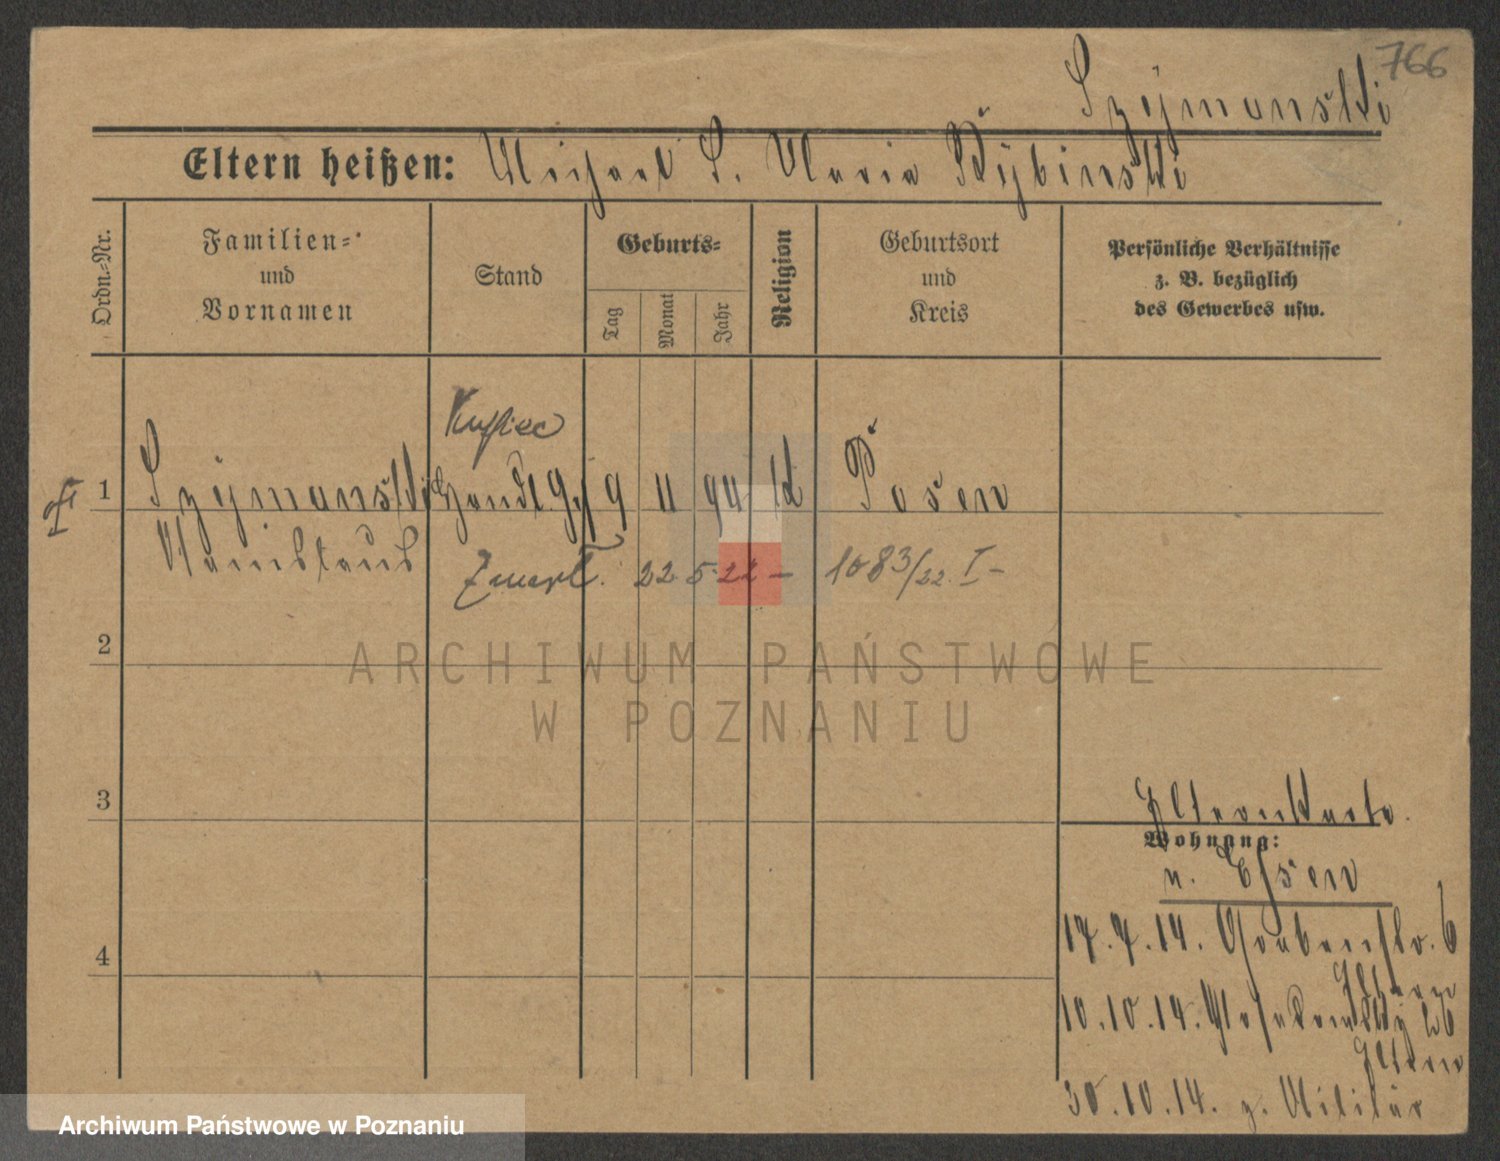 766
Szymanski
Eltern heißen: Michael S. Maria Rybinski
Ordn.=Nr.
Familien=
und
Vornamen
Stand
Geburts=
Tag
Monat
Jahr
Religion
Geburtsort
und
Kreis
Persönliche Verhältnisse
z. B. bezüglich
des Gewerbes usw.
Kupiec
1 Szymanski Handl. Geh 9 11 94 k Posen
Stanislaus
Zmarł. 22 5 22 — 1083/22. I —
2
ARCHIWUM PAŃSTWOWE
W POZNANIU
3
Elternkarte.
Wohnung:
n. Essen
17.7.14. Grabenstr. 6
Eltern
4
10.10.14. 26
Eltern
30.10.14. z. Militär
Archiwum Państwowe w Poznaniu